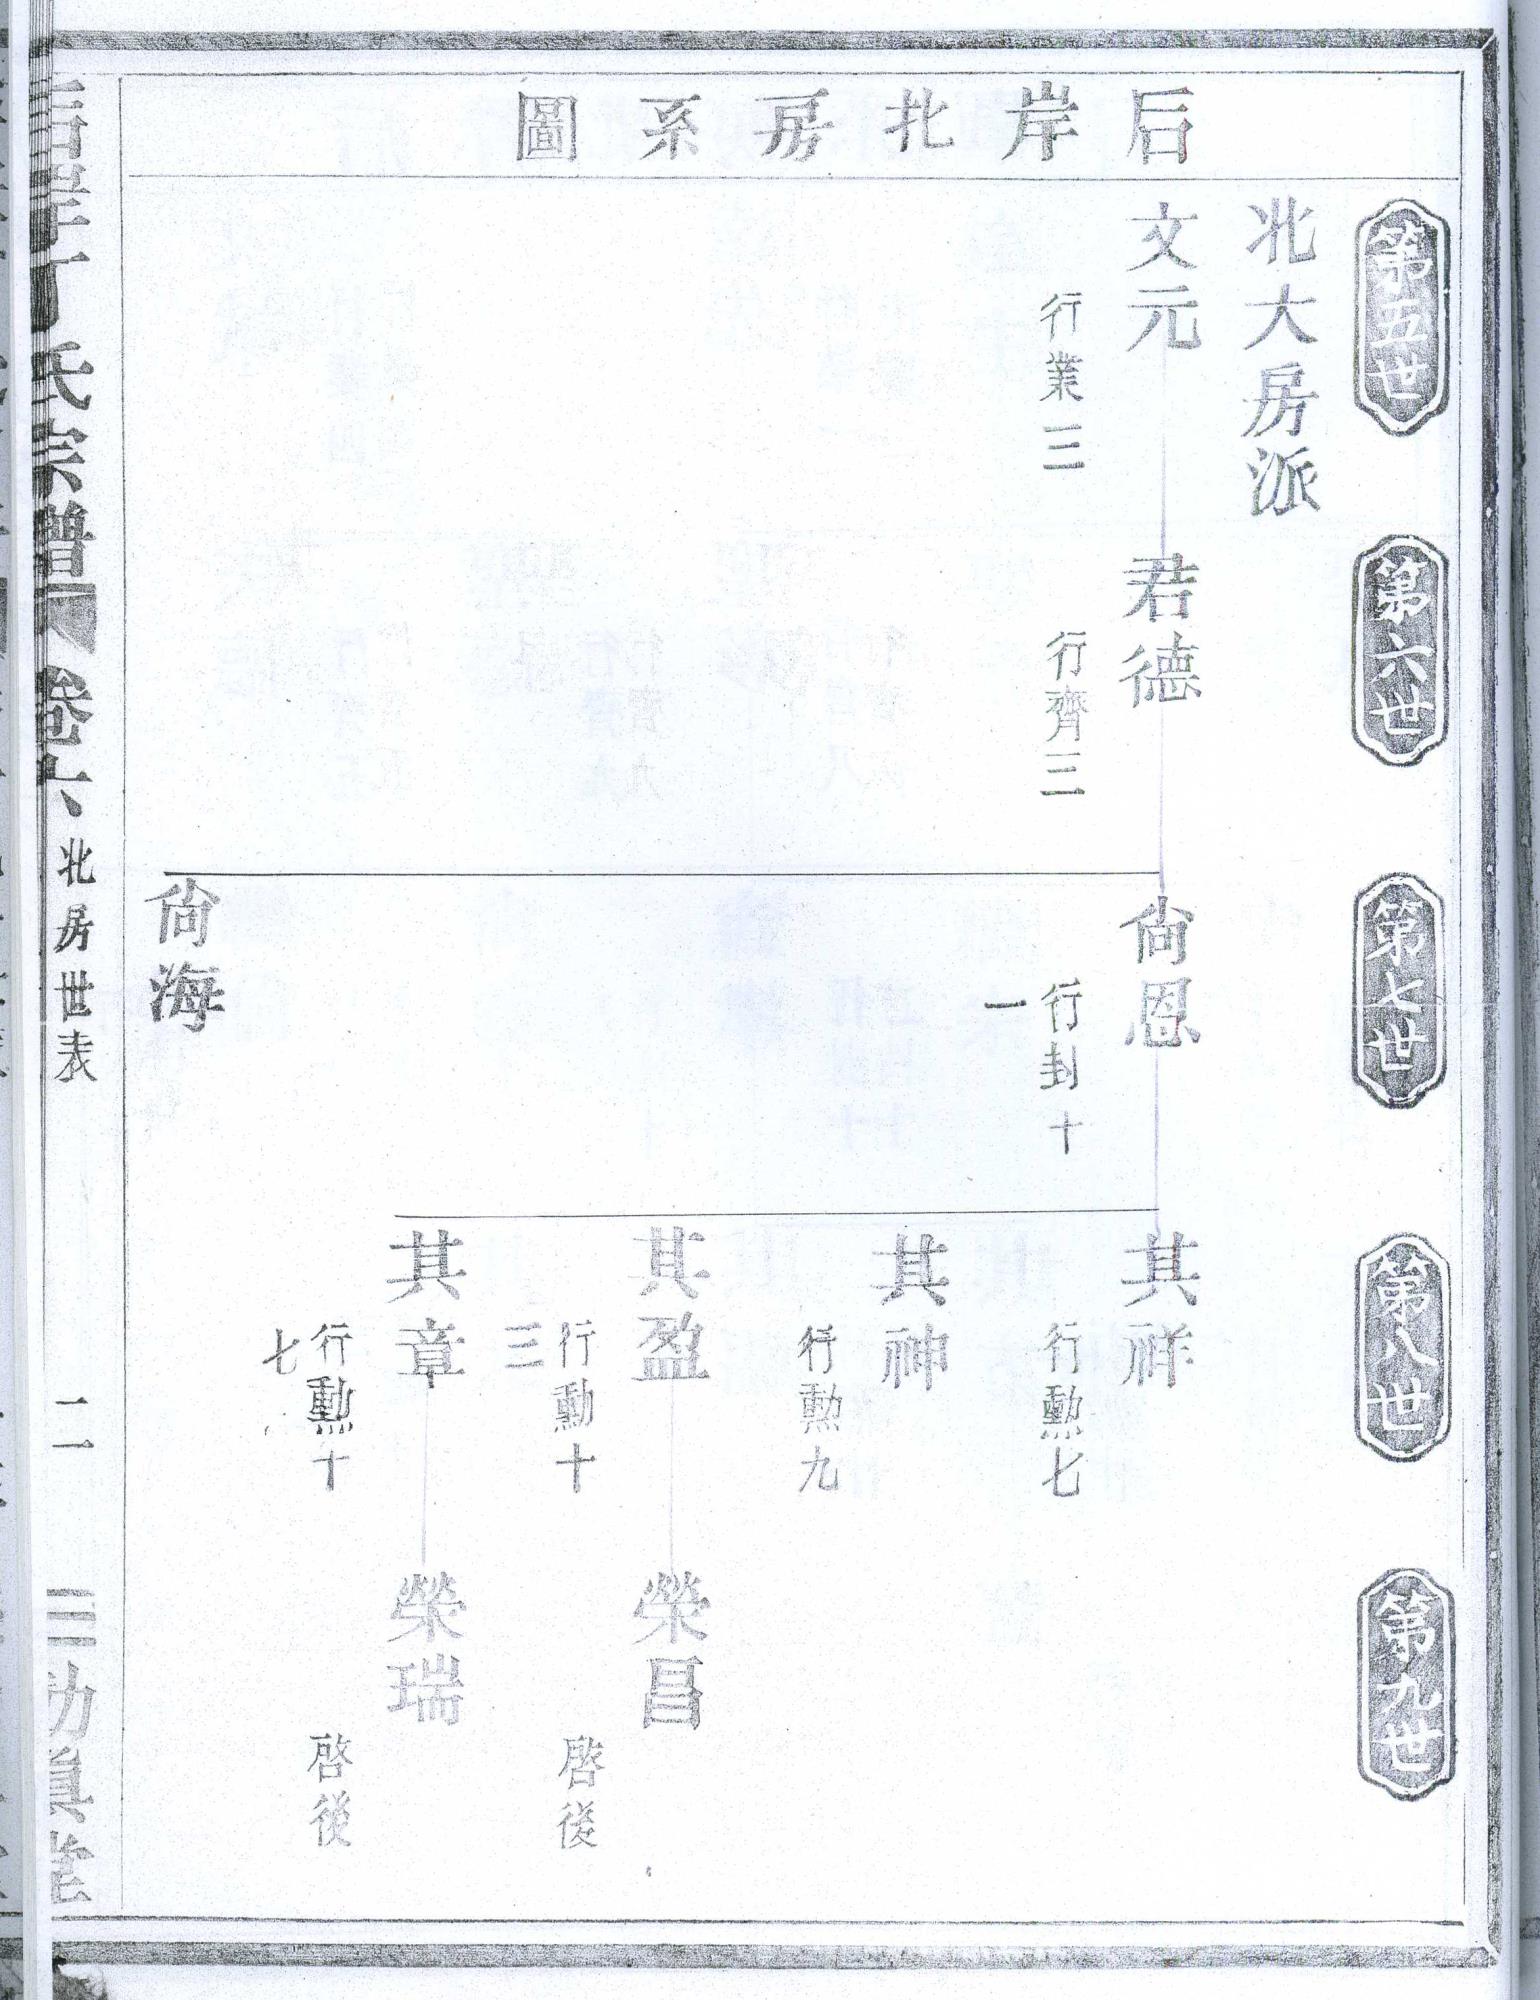 后岸北房系圖
第五世
第六世
第七世
第八世
第九世
北大房派
文元
行業三
君德
行齊三
尙恩
行封十
一
尙海
其祥
行勳七
其神
行勳九
其盈
行勳十
三
榮昌
啓後
其章
行勳十
七
榮瑞
啓後
后岸丁氏宗譜
卷六
北房世表
二